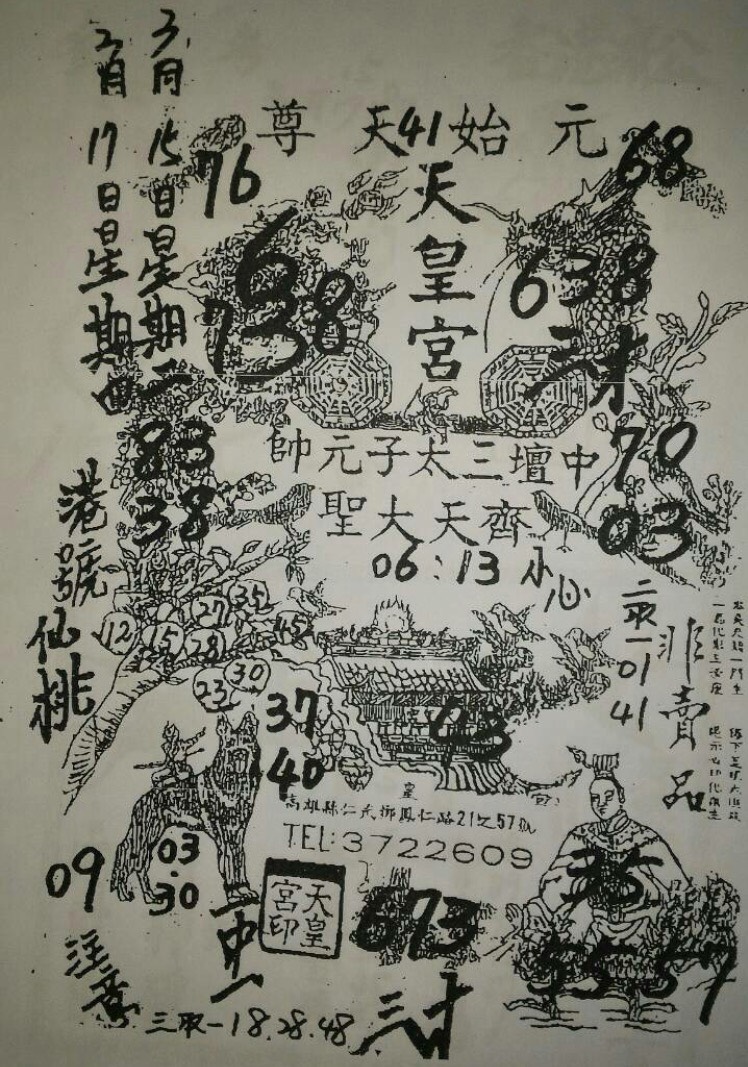 元始天尊
41
天皇宮
中壇三太子元帥
齊天大聖
06:13 小心
三月15日星期二
二月17日星期四
76
68
6
738
638
83
38
70
03
港號仙桃
35
27
45
12
15
28
30
23
37
40
43
二取一01 41
非賣品
高雄縣仁武鄉鳳仁路21之57號
TEL:3722609
09
03.30
天皇宮印
673
35
55 57
注意
一中一
三取一18.28.48
三才